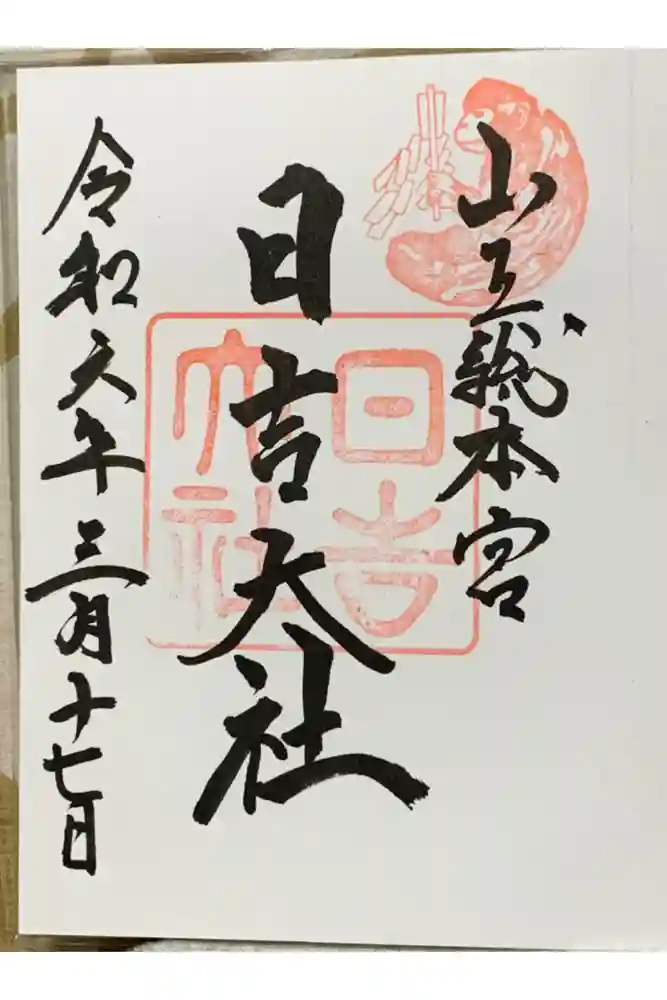 山王総本宮
日吉大社
日吉大社
令和六年三月十七日